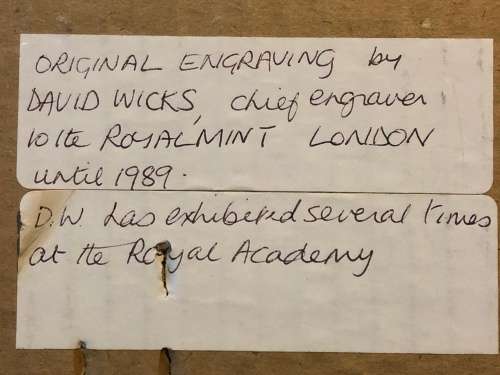 ORIGINAL ENGRAVING by
DAVID WICKS, chief engraver
to the ROYAL MINT LONDON
until 1989.
D.W. has exhibited several times
at the Royal Academy